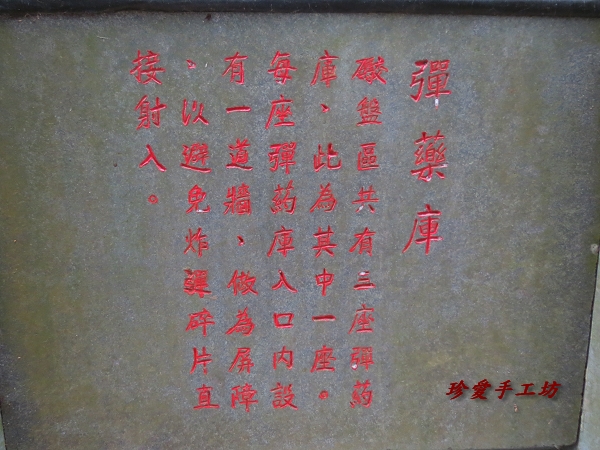 彈藥庫
礮盤區共有三座彈葯
庫、此為其中一座。
每座彈葯庫入口內設
有一道牆、做為屏障
、以避免炸彈碎片直
接射入。
珍愛手工坊